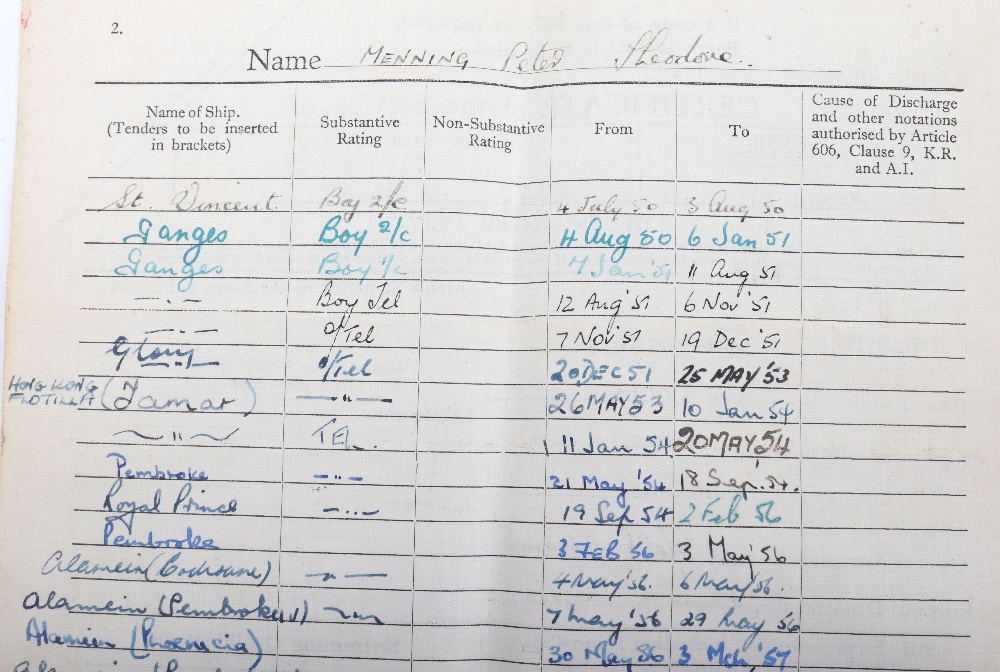 2.
Name MENNING Peter Theodore.
Name of Ship. (Tenders to be inserted in brackets) Substantive Rating Non-Substantive Rating From To Cause of Discharge and other notations authorised by Article 606, Clause 9, K.R. and A.I.
St. Vincent. Boy 2/c 4 July 50 3 Aug 50
Ganges Boy 2/c 4 Aug 50 6 Jan 51
Ganges Boy 1/c 7 Jan '51 11 Aug 51
— . — Boy Tel 12 Aug '51 6 Nov '51
— . — O/Tel 7 Nov '51 19 Dec '51
Glory O/Tel 20 DEC 51 25 MAY '53
HONG KONG FLOTILLA (Tamar) — " — 26 MAY 53 10 Jan 54
— " — TEL. 11 Jan 54 20 MAY 54
Pembroke — " — 21 May '54 18 Sep '54.
Royal Prince — " — 19 Sep 54 2 Feb 56
Pembroke 3 FEB 56 3 May '56
Alamein (Cochrane) — " — 4 May '56. 6 May '56.
Alamein (Pembroke) — " — 7 May '56 29 May 56
Alamein (Phoenicia) 30 May 56 3 Mch, '57